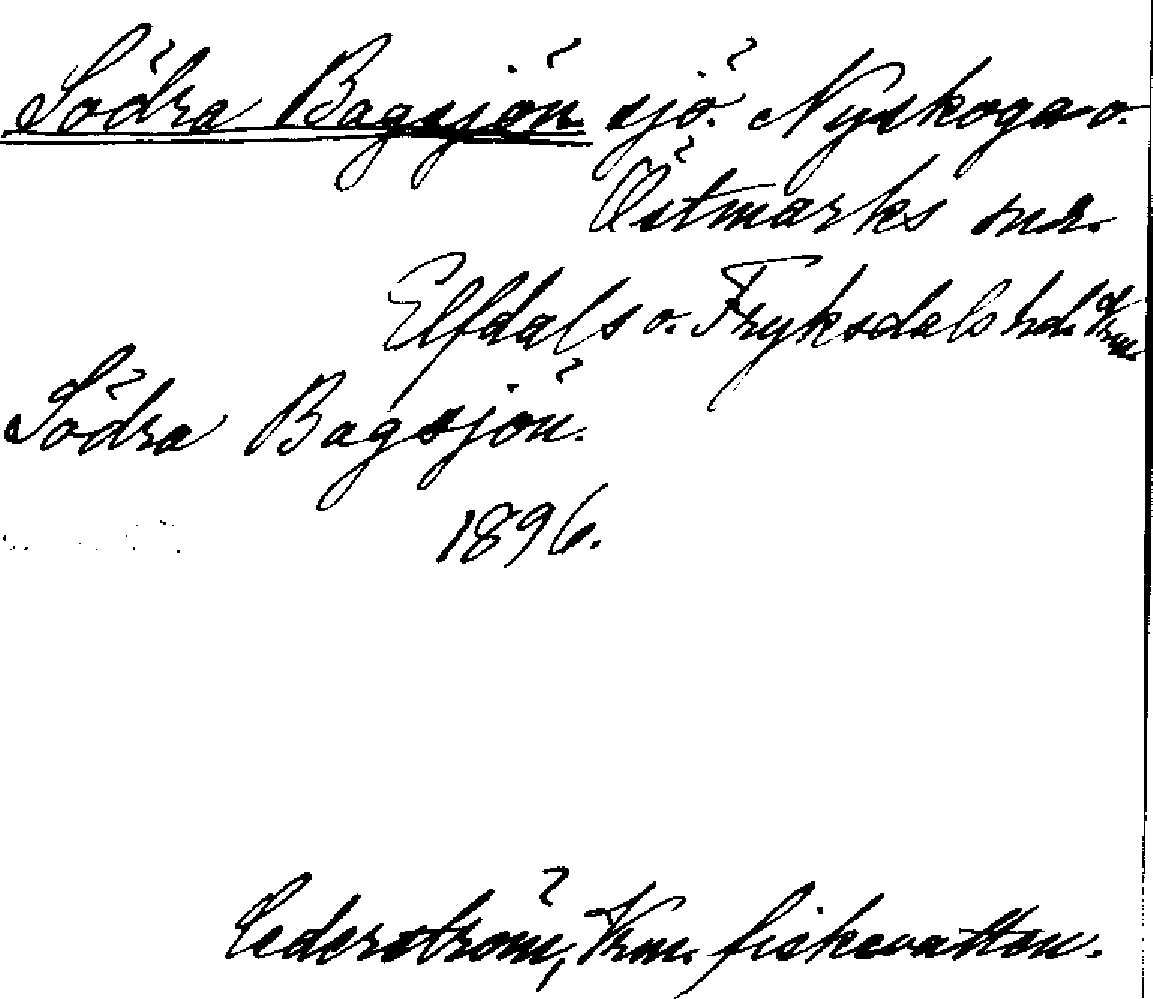 Södra Bagsjön sjö. Nyskoga o.
Östmarks snr.
Elfdals o. Fryksdals hd. Vrm.
Södra Bagsjön.
1896.
Cederström, Vrm. fiskevatten.